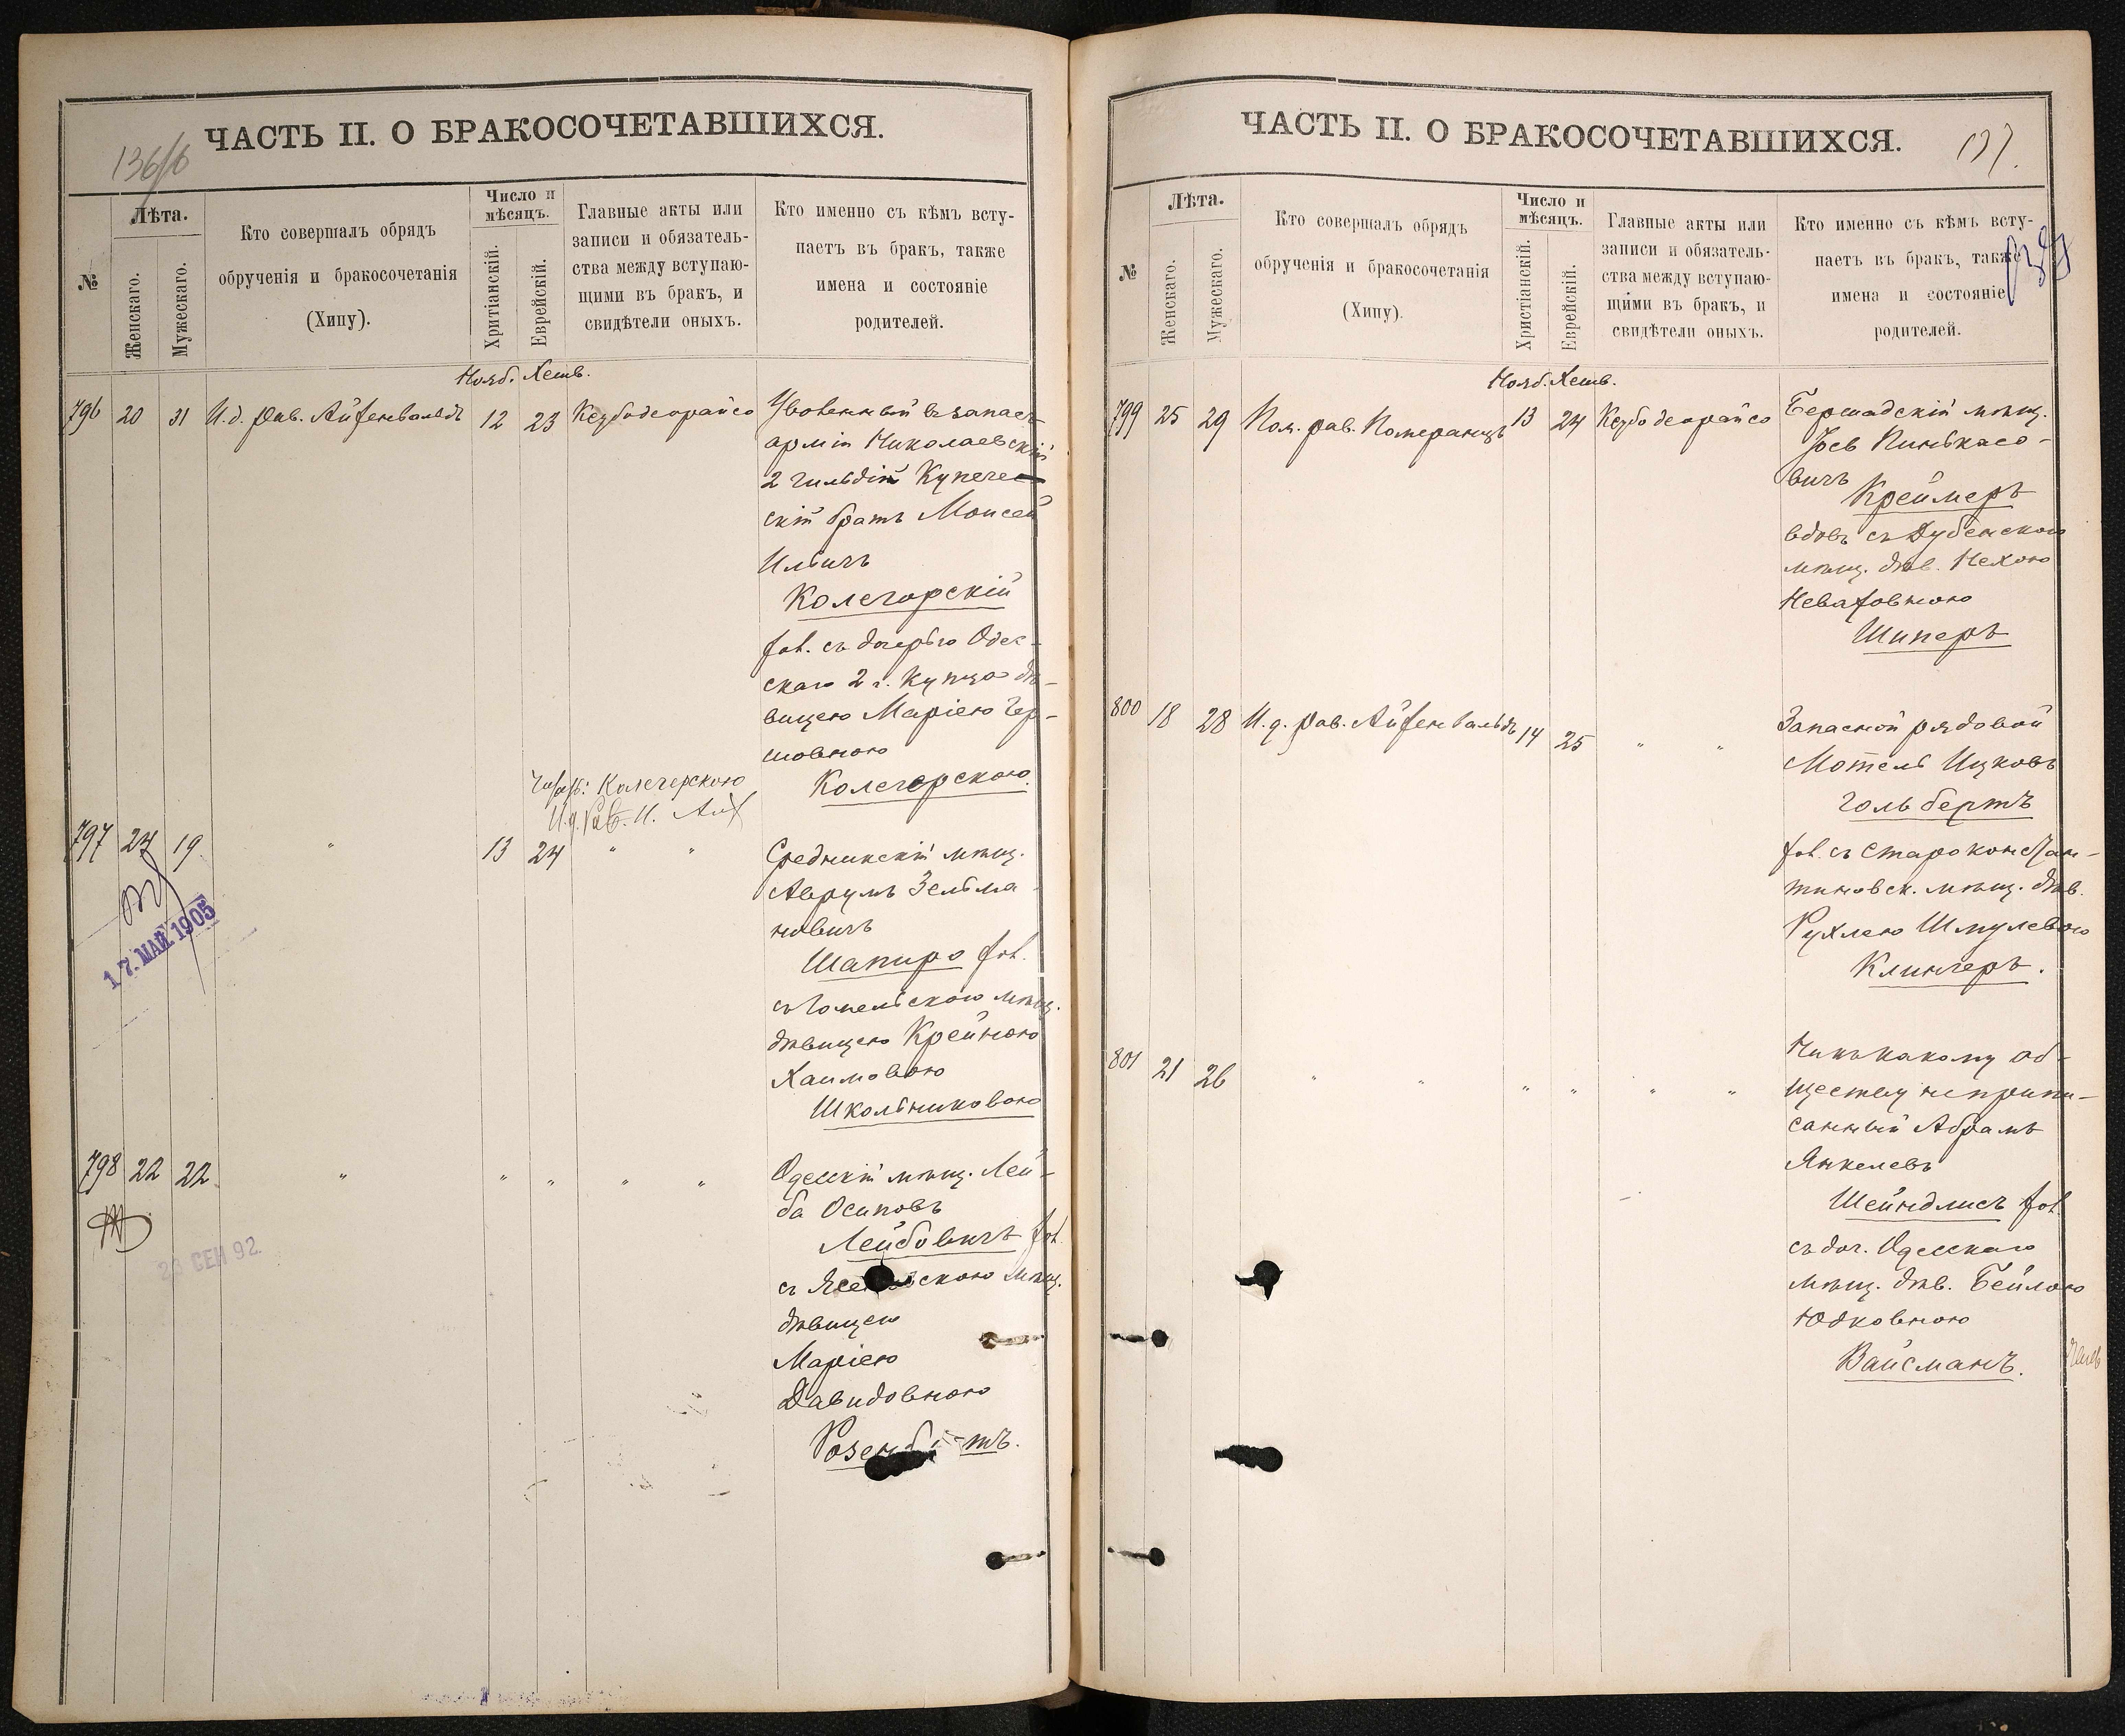 ЧАСТЬ II. О БРАКОСОЧЕТАВШИХСЯ.
136/б
№
Лѣта.
Женскаго.
Мужескаго.
Кто совершалъ обрядъ
обрученія и бракосочетанія
(Хипу).
Число и
мѣсяцъ.
Хритіанскій.
Еврейскій.
Главные акты или
записи и обязатель-
ства между вступаю-
щими въ бракъ, и
свидѣтели оныхъ.
Кто именно съ кѣмъ всту-
паетъ въ бракъ, также
имена и состояніе
родителей.
Нояб. Хешв.
796 20 31 И.д. рав. Айзенвальдъ 12 23 Кезбодеорайсо Уволенный въ запасъ
арміи Николаевскій
2 гильдіи Купече
скій братъ Моисей
Ильичъ
Колегорскій
хол. съ дочерью Одес-
скаго 2 г. Купца дѣ-
вицею Маріею Гер-
шовною
Колегорскою.
Колегорскою
И.д. Рав. И.
797 24 19 " 13 24 " " Средникскій мѣщ.
Аврумъ Зельма
новичъ
Шапиро хол.
съ Гомельскою мѣщ.
дѣвицею Крейною
Хаимовою
Школьниковою
17. МАЙ 1905
798 22 22 " " " " " Одесскій мѣщ. Лей-
ба Осиповъ
Лейбовичъ хол.
съ скою мѣщ.
дѣвицею
Маріею
Давидовною
23 СЕН 92
ЧАСТЬ II. О БРАКОСОЧЕТАВШИХСЯ.
137.
№
Лѣта.
Женскаго.
Мужескаго.
Кто совершалъ обрядъ
обрученія и бракосочетанія
(Хипу).
Число и
мѣсяцъ.
Христіанскій.
Еврейскій.
Главные акты или
записи и обязатель-
ства между вступаю-
щими въ бракъ, и
свидѣтели оныхъ.
Кто именно съ кѣмъ всту-
паетъ въ бракъ, также
имена и состояніе
родителей.
Нояб. Хешв.
799 25 29 Пом. рав. Померанцъ 13 24 Кезбодеорайсо Бершадскій мѣщ.
Іось Пинькасо-
вичъ
Креймеръ
вдовъ съ Дубенскою
мѣщ. дѣв. Нехою
Неваховною
Шиперъ
800 18 28 И.д. рав. Айзенвальдъ 14 25 " " Запасной рядовой
Мотель Ицковъ
Гольбертъ
хол. съ Староконстан-
тиновск. мѣщ. дѣв.
Рухлею Шмулевою
Клингеръ.
801 21 26 " " " " " " Ни къ какому об-
ществу не припи-
санный Абрамъ
Янкелевъ
Шейндлисъ хол.
съ доч. Одесскаго
мѣщ. дѣв. Бейлою
Юдковною
Вайсманъ.